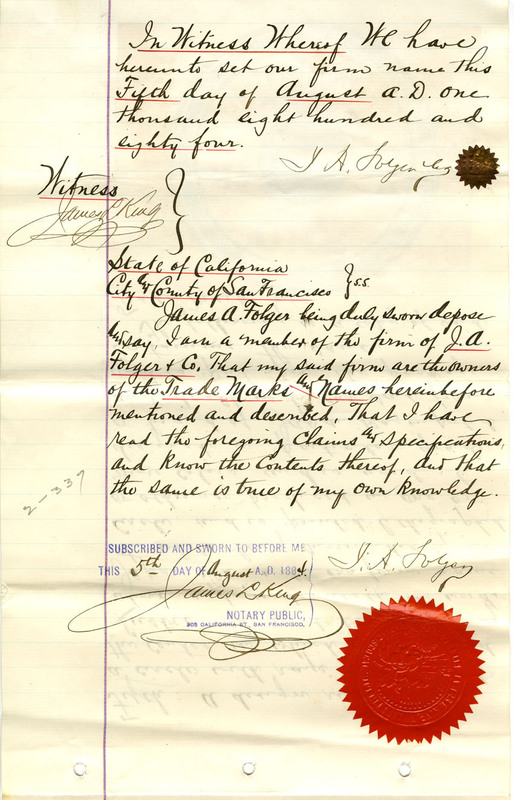 In Witness Whereof We have
hereunto set our firm name this
Fifth day of August A.D. one
thousand eight hundred and
eighty four.
J. A. Folger & Co
Witness
James L. King
State of California
City & County of San Francisco } s.s.
James A. Folger being duly sworn depose
and say, I am a member of the firm of J. A.
Folger & Co. That my said firm are the owners
of the Trade Marks and Names hereinbefore
mentioned and described, That I have
read the foregoing Claims and specifications,
and know the Contents thereof, and that
the same is true of my own knowledge.
2-337
SUBSCRIBED AND SWORN TO BEFORE ME
THIS 5th DAY OF August A.D. 1884.
J. A. Folger
James L. King
NOTARY PUBLIC,
305 CALIFORNIA ST. SAN FRANCISCO.